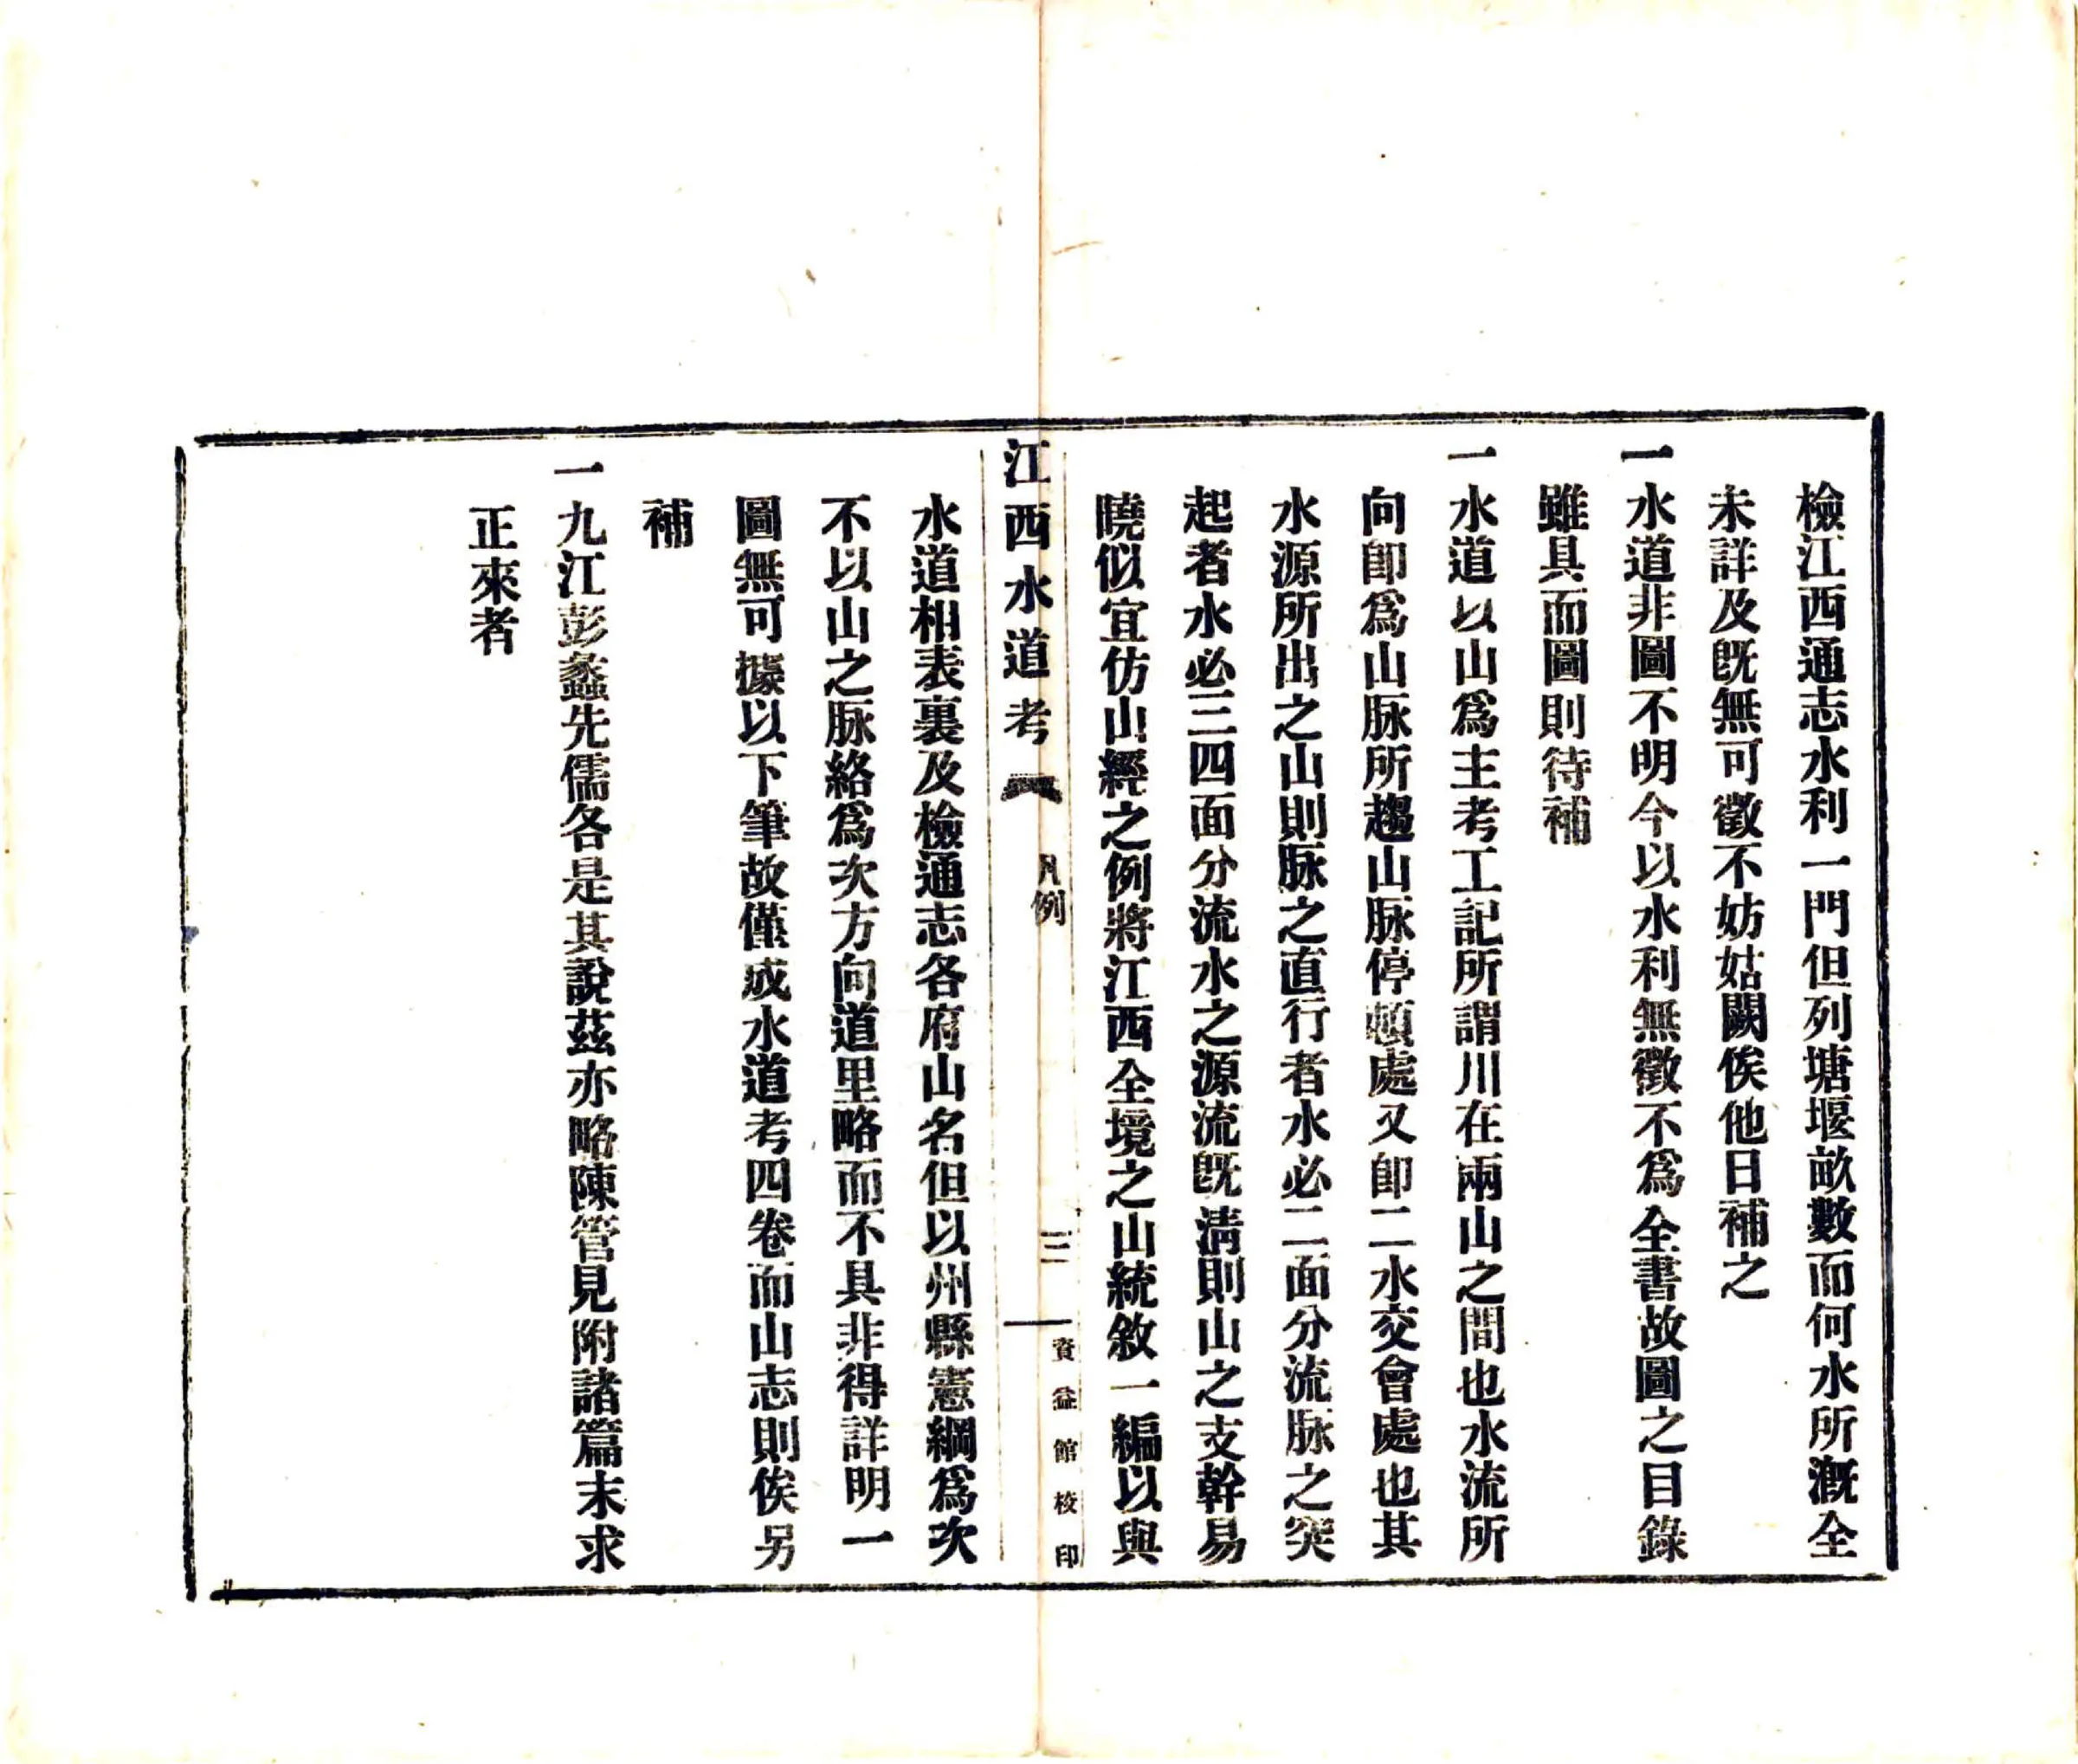 檢江西通志水利一門但列塘堰畝數而何水所漑全
未詳及旣無可徵不妨姑闕俟他日補之
一水道非圖不明今以水利無徵不爲全書故圖之目錄
雖具而圖則待補
一水道以山爲主考工記所謂川在兩山之間也水流所
向卽爲山脉所趨山脉停頓處又卽二水交會處也其
水源所出之山則脉之直行者水必二面分流脉之突
起者水必三四面分流水之源流旣淸則山之支幹易
曉似宜仿山經之例將江西全境之山統敘一編以與
江西水道考 凡例 三 資益館校印
水道相表裏及檢通志各府山名但以州縣憲綱爲次
不以山之脉絡爲次方向道里略而不具非得詳明一
圖無可據以下筆故僅成水道考四卷而山志則俟另
補
一九江彭蠡先儒各是其說茲亦略陳管見附諸篇末求
正來者